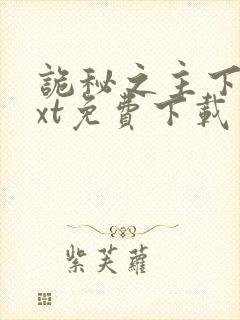 詭秘之主下
xt免費下載
紫芙蘿